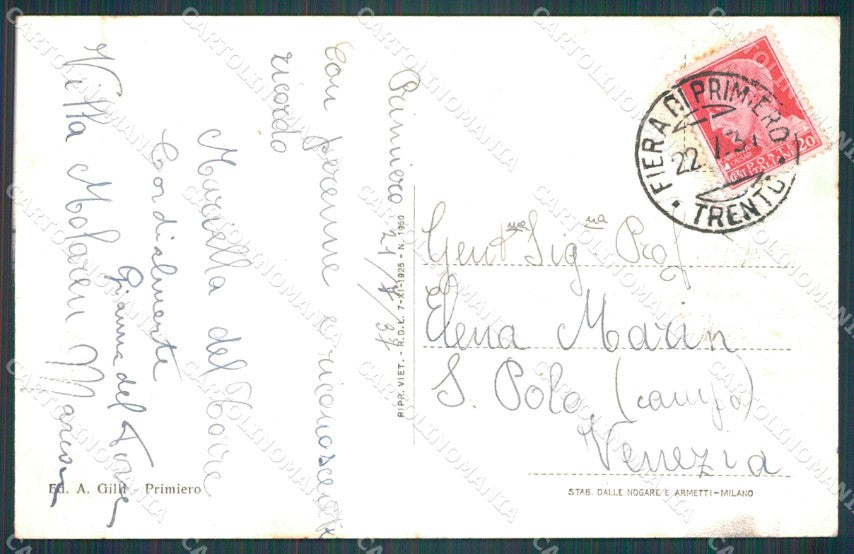 Primiero 21/7/37
Con perenne e riconoscente
ricordo
Mariella del Torre
Cordialmente
Gianna del Torre
Villa
FIERA DI PRIMIERO
22.
TRENTO
POSTE
ITALIANE
20
Gent.ma Sig.na Prof
Elena Marin
S. Polo (campo)
Venezia
RIPR. VIET. - R.D.L. 7-XI-1925 - N. 1950
Ed. A. Gilli - Primiero
STAB. DALLE NOGARE E ARMETTI-MILANO
CARTOLINOMANIA